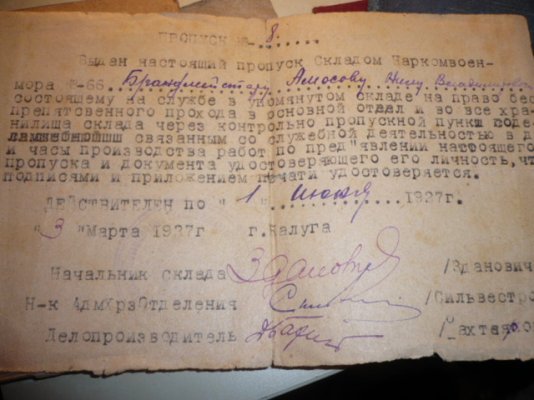 ПРОПУСК № 8.
Выдан настоящий пропуск Складом Наркомвоен-
мора №-66 Брандмейстеру Амосову Нилу
состоящему на службе в упомянутом складе на право бес
препятовенного прохода в основной отдел и во все хра
нилища склада через контрольно пропускной пункт
связанным со служебной деятельностью в д
и часы производства работ по пред"явлении настоящего
пропуска и документа удостоверяющего его личность, чт
подписями и приложением печати удостоверяется.
ДЕЙСТВИТЕЛЕН ПО "1" июня 1927г.
"3"Марта 1927г г.Калуга
Начальник склада Зданович /Зданович
Н-к АдмХрзОтделения /Сильвестро
Делопроизводитель